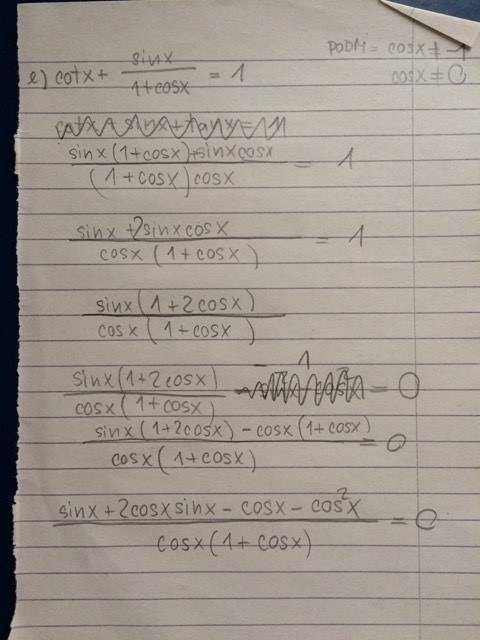 PODM = cosx ≠ -1
cosx ≠ 0
e) cotx + sinx / 1+cosx = 1
sinx(1+cosx)+sinxcosx / (1+cosx)cosx = 1
sinx+2sinxcosx / cosx(1+cosx) = 1
sinx(1+2cosx) / cosx(1+cosx)
sinx(1+2cosx) / cosx(1+cosx) - 1 = 0
sinx(1+2cosx)-cosx(1+cosx) / cosx(1+cosx) = 0
sinx+2cosxsinx-cosx-cos²x / cosx(1+cosx) = 0